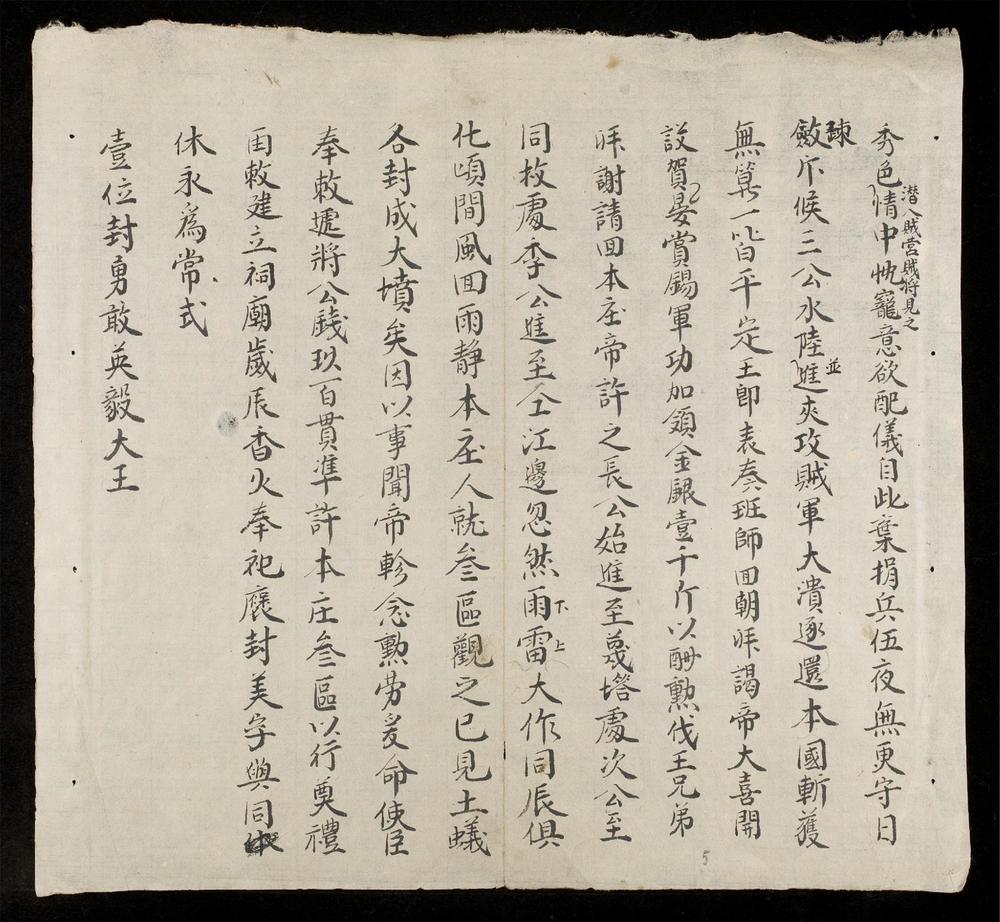 秀色情中忱寵意欲配儀自此棄捐兵伍夜無更守日
潜入賊营賊將見之
疎斂斥候三公水陸進夾攻賊軍大潰逐還本國斬獲
並
無筭一皆平定王即表奏班師囬朝拜謁帝大喜開
設賀晏賞錫軍功加領金銀壹千斤以酬勲伐王兄弟
拜謝請囬本庄帝許之長公始進至處次公至
同枚處季公進至仝江邊忽然雨雷大作同辰俱
下上
化頃間風囬雨静本庄人就叁區觀之已見土蟻
各封成大墳矣因以事聞帝軫念勲劳爰命使臣
奉敕墟將公錢玖百貫準許本庄叁區以行奠禮
因敕建立祠廟歲辰香火奉祀褒封美字與同
休永為常式
壹位封勇敢英毅大王
5